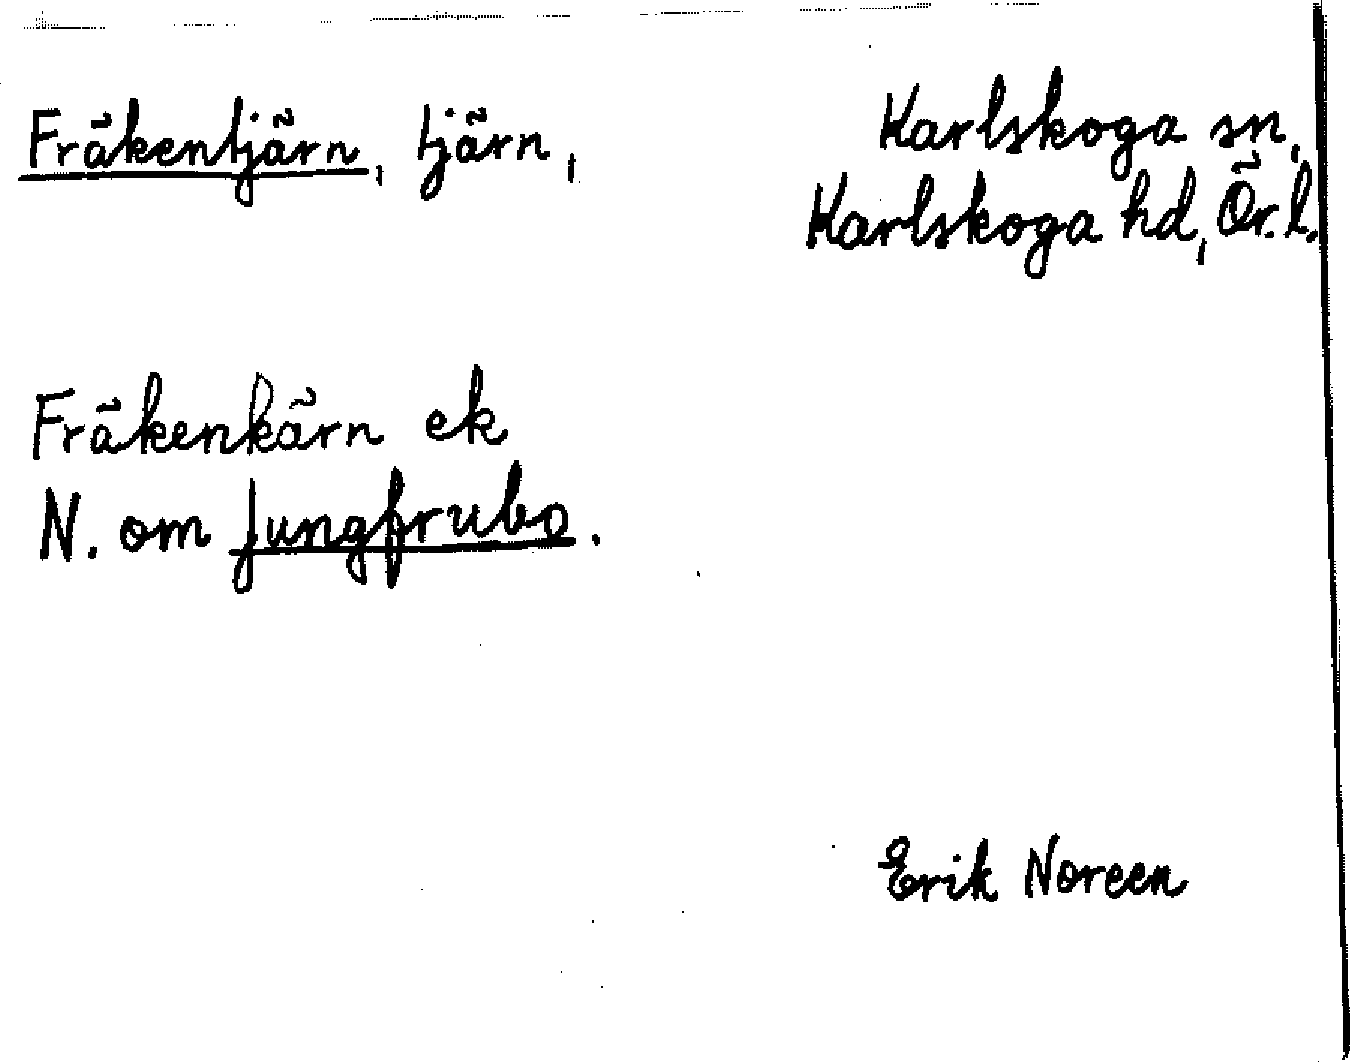 Fräkentjärn, tjärn,
Karlskoga sn,
Karlskoga hd, Ör. l.
Fräkenkärn ek
N. om Jungfrubo.
Erik Noreen